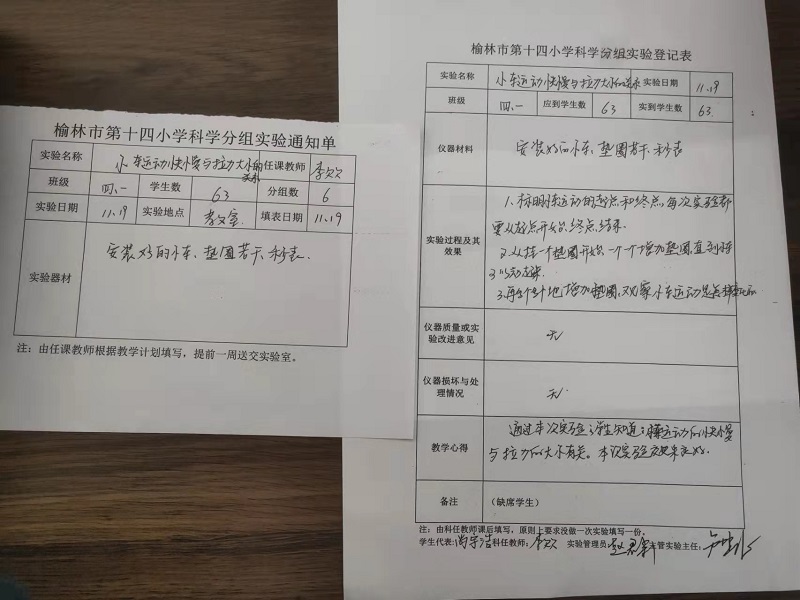 榆林市第十四小学科学分组实验通知单
实验名称 小车运动快慢与拉力大小的关系 任课教师 李欠
班级 四.一 学生数 63 分组数 6
实验日期 11.19 实验地点 教室 填表日期 11.19
实验器材 安装好的小车、垫圈若干、秒表.
注：由任课教师根据教学计划填写，提前一周送交实验室。
榆林市第十四小学科学分组实验登记表
实验名称 小车运动快慢与拉力大小的关系 实验日期 11.19
班级 四.一 应到学生数 63 实到学生数 63.
仪器材料 安装好的小车、垫圈若干、秒表
实验过程及其效果
1、标明小车运动的起点和终点,每次实验都
要从起点开始,终点结束.
2.从挂一个垫圈开始,一个一个增加垫圈,直到
3.再个地增加垫圈,观察小车运动
仪器质量或实验改进意见 无
仪器损坏与处理情况 无.
教学心得
通过本次实验,学生知道:小车运动的快慢
与拉力的大小有关。本次实验效果良好.
备注 （缺席学生）
注：由科任教师课后填写，原则上要求没做一次实验填写一份。
学生代表: 科任教师: 李欠 实验管理员: 主管实验主任: